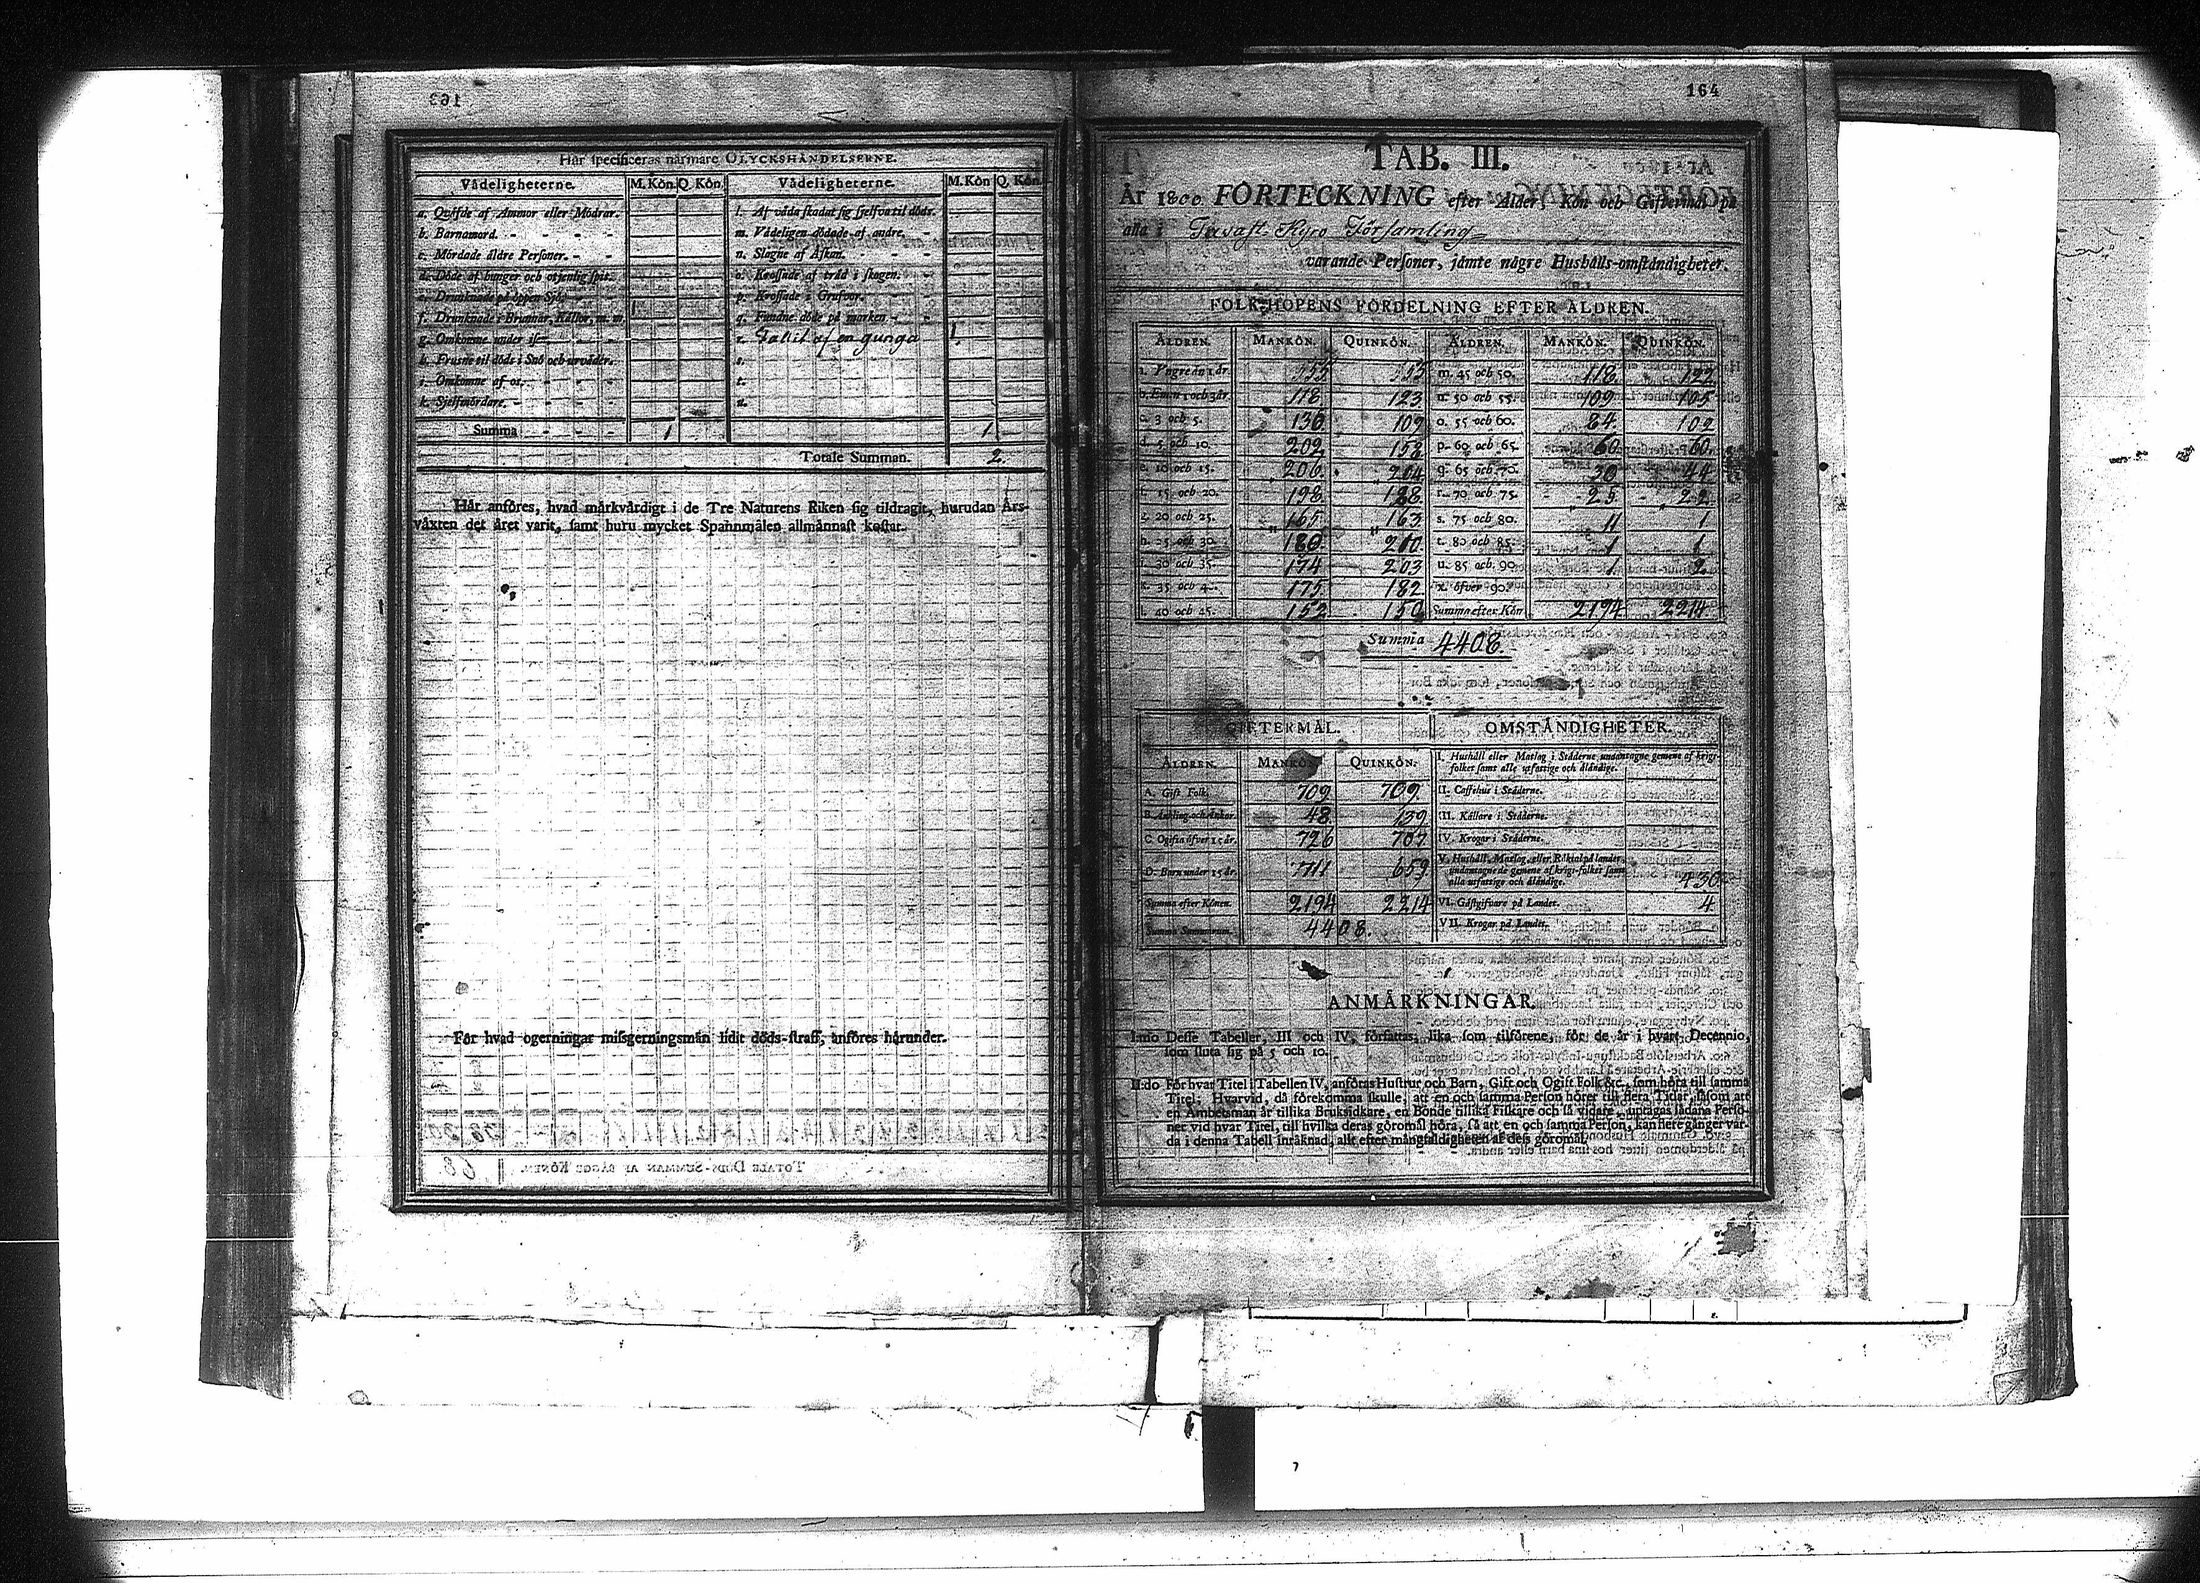 163
Hår specificeras nårmare OLYCKSHÅNDELSERNE.
Vådeligheterne. M. Kôn. Q. Kôn. Vådeligheterne. M. Kôn Q. Kôn.
a. Qvåfde af Ammor eller Mödrar. l. Af våda skadat sig sjelfva til döds.
b. Barnamord. m. Vådeligen dödade af andre.
c. Mördade åldre Personer. n. Slagne af Åskan.
d. Döde af hunger och otjenlig spis. o. Krossade af tråd i skogen.
e. Drunknade på öppen Sjö. p. Krossade i Grufvor.
f. Drunknade i Brunnar, Kållor, m. m. 1 q. Fundne döde på marken
g. Omkomne under is r. Fallit af en gunga 1.
h. Frusne til döds i Snö och urvåder. s.
i. Omkomne af os. t.
k. Sjelfmördare. u.
Summa 1 1
Totale Summan. 2.
Hår anföres, hvad mårkvårdigt i de Tre Naturens Riken sig tildragit, hurudan Års-
våxten det året varit, samt huru mycket Spanmålen allmånnast kostar.
För hvad ogerningar missgerningsmån lidit döds-straff, anföres hårunder.
TOTALE DÖDS-SUMMAN AF BÅGGE KÖNEN. 68
164
TAB. III.
År 1800 FÖRTECKNING efter Ålder Kön och Giftermål på
alla i Tavast-Kyro Församling
varande Personer, jåmte någre Hushålls-omståndigheter.
FOLK-HOPENS FÖRDELNING EFTER ÅLDREN.
ÅLDREN. MANKÖN. QUINKÖN. ÅLDREN. MANKÖN. QUINKÖN.
a. Yngre än 1 år. 55 55 m. 45 och 50. 118. 122
b. Emn 1 och 3 år. 118 123 n. 50 och 55. 109 105
c. 3 och 5. 136 109 o. 55 och 60. 84. 102
d. 5 och 10. 202 158 p. 60 och 65. 60 60
e. 10 och 15. 206 204 q. 65 och 70. 30 44
f. 15 och 20. 198 188 r. 70 och 75. 25 22
g. 20 och 25. 165 163 s. 75 och 80. 11 1
h. 25 och 30. 180 200 t. 80 och 85. 1 1
i. 30 och 35. 174 203 u. 85 och 90. 1 2
k. 35 och 4 175 182 x. öfver 90.
l. 40 och 45. 152 150 Summa efter Kön 2194 2214
Summa 4408.
GIFTERMÅL. OMSTÅNDIGHETER.
ÅLDREN. MANKÖN. QUINKÖN.
I. Hushåll eller Matlag i Ståderne, undantagne gemene af krigs-
folket samt alle utfattige och ålåndige.
A. Gift Folk. 709 709. II. Caffehus i Ståderne.
B. Enkling och Ånkor. 48 139 III. Kållare i Ståderne.
C. Ogifta öfver 15 år. 726 707 IV. Krogar i Ståderne.
D. Barn under 15 år. 711 659. V. Hushåll, Matlag, eller Röktal på landet,
undantagne de gemene af krigs-folket samt
alla utfattige och ålåndige. 430
Summa efter Könen. 2194 2214 VI. Gåstgifvare på Landet. 4
Summa Summarum. 4408. VII. Krogar på Landet.
ANMÅRKNINGAR.
I:mo Desse Tabeller, III och IV, författas, lika som tilförene, för de år i hvart Decennio,
som sluta sig på 5 och 10.
II:do För hvar Titel i Tabellen IV, anföras Hustrur och Barn, Gift och Ogift Folk &c., som höra till samma
Titel. Hvarvid, då förekomma skulle, att en och samma Person hörer till flera Titlar, såsom att
en Åmbetsman år tillika Bruksidkare, en Bonde tillika Fiskare och så vidare, uptagas sådana Perso-
ner vid hvar Titel, till hvilka deras göromål höra, så att en och samma Person, kan flere gånger var-
da i denna Tabell inråknad, allt efter mångfaldigheten af dess göromål.